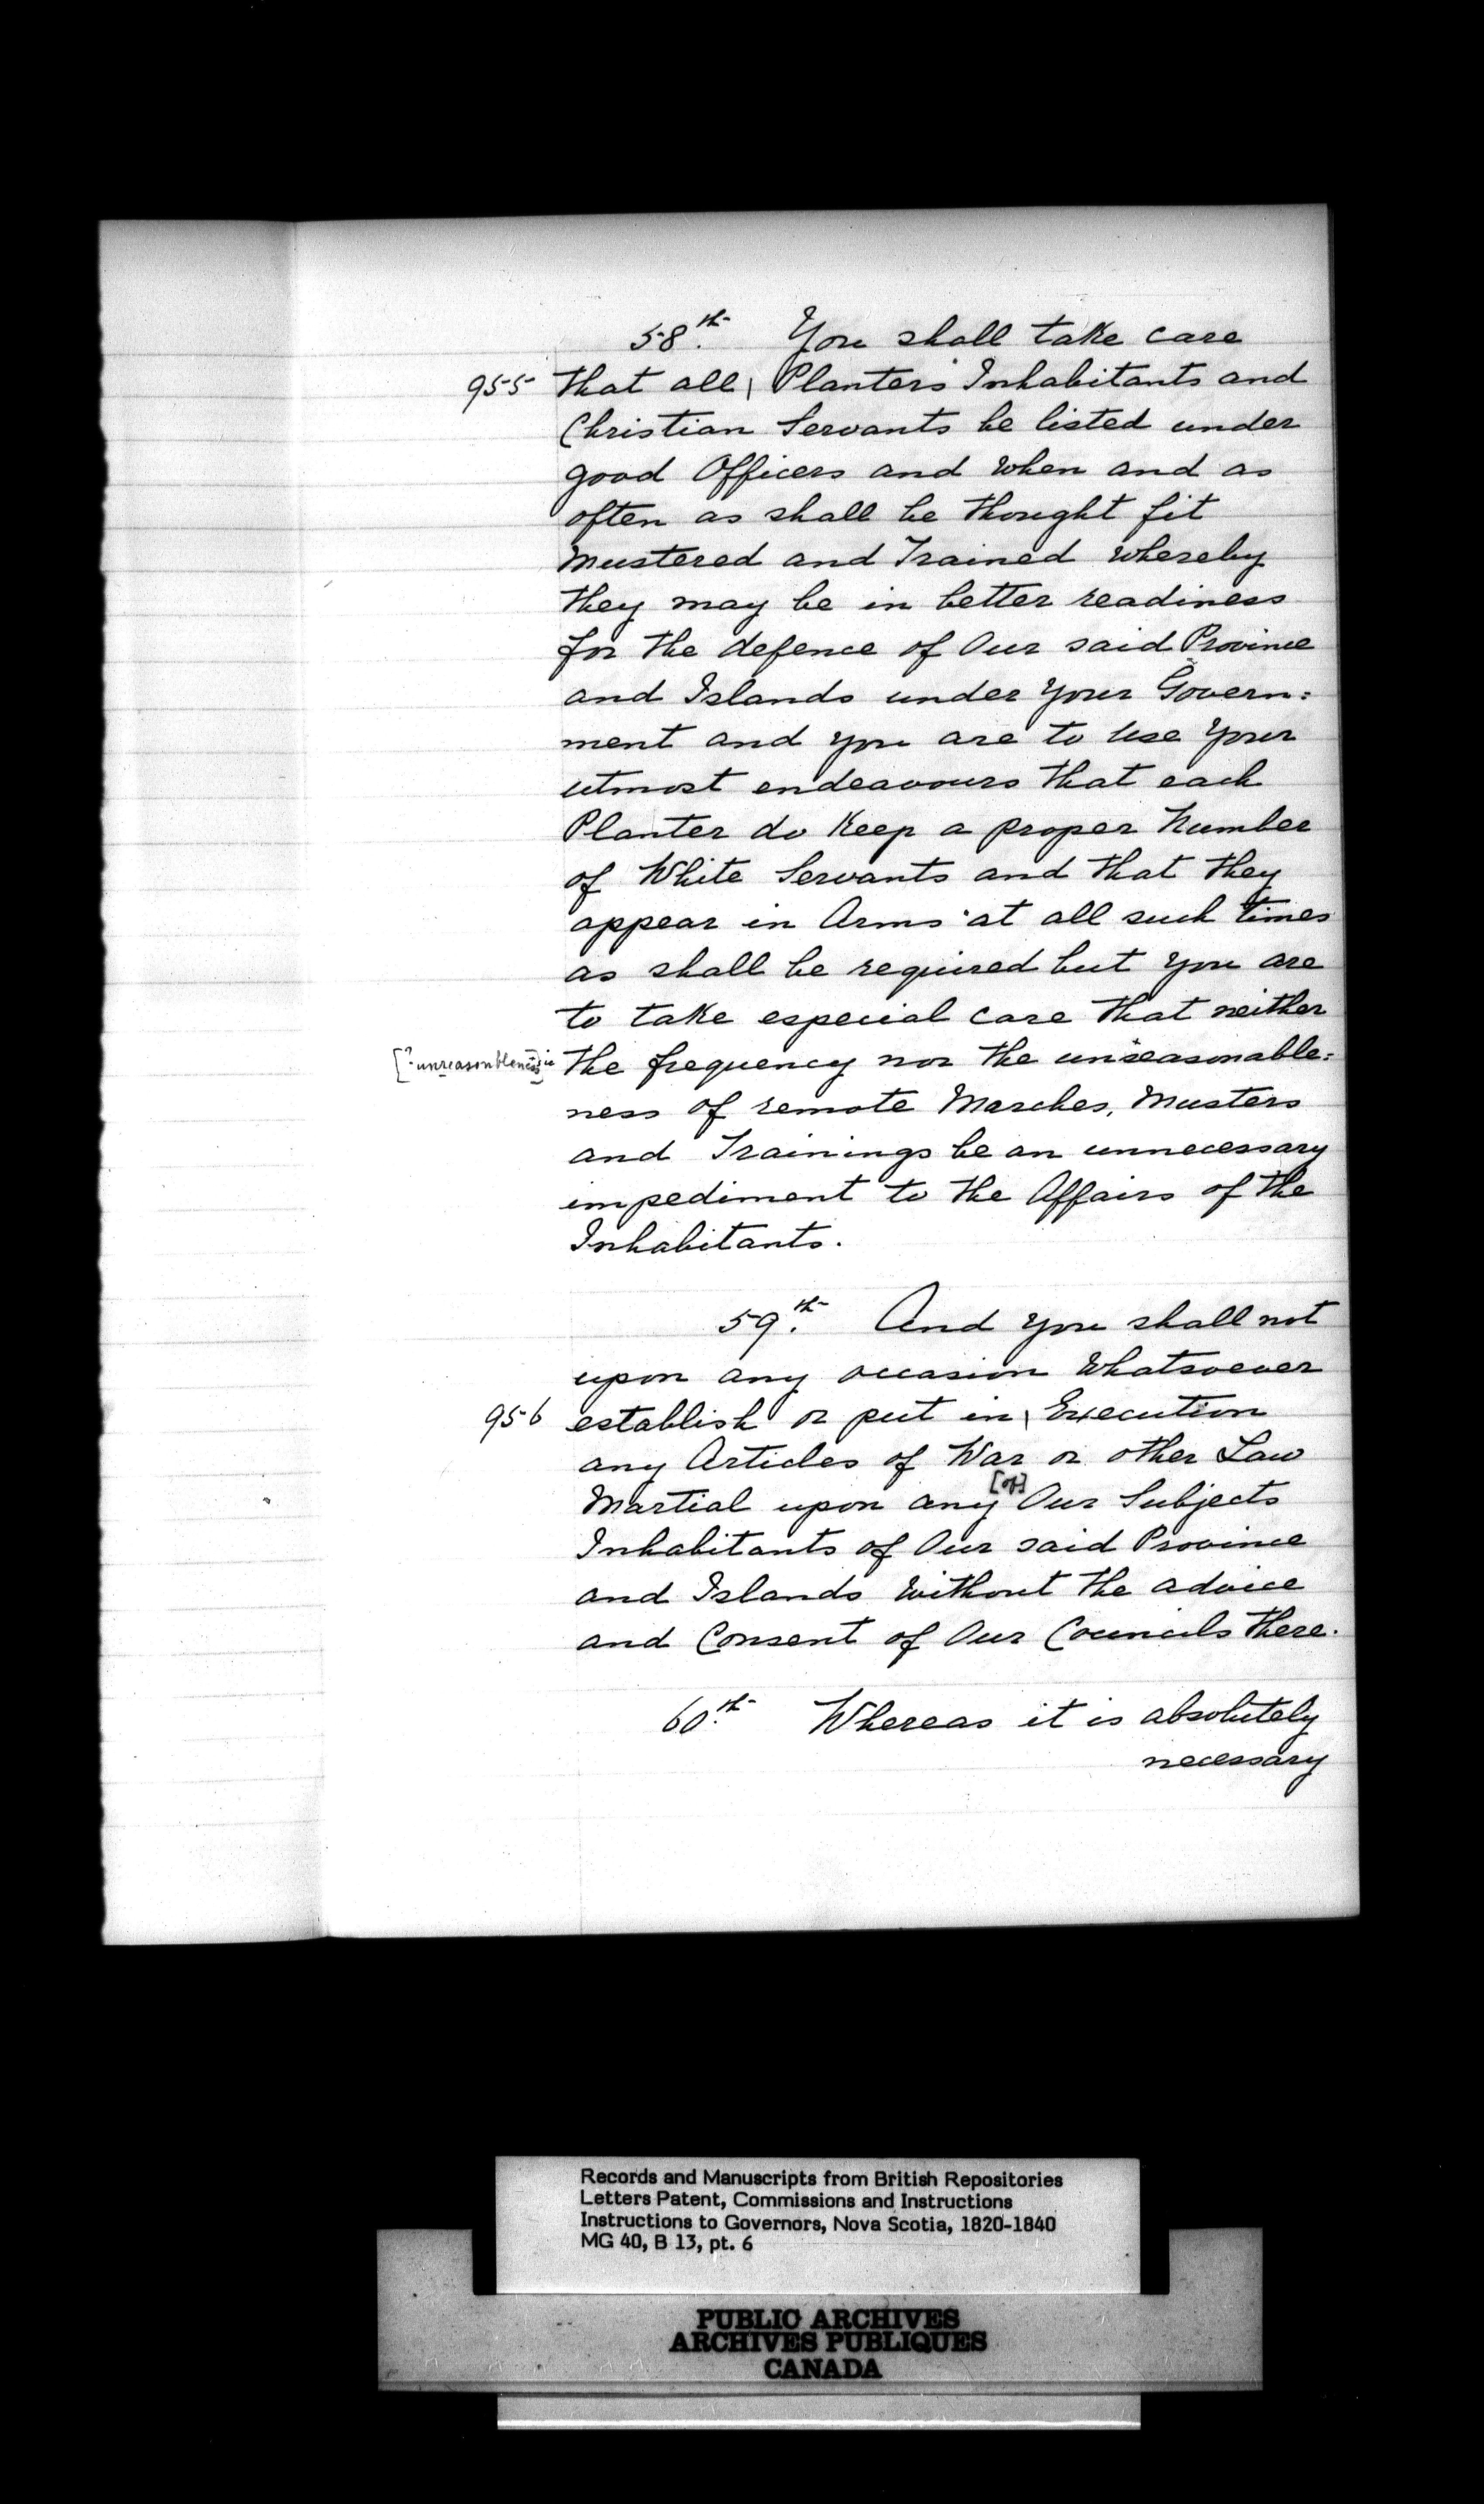 58.th You shall take care
955 that all | Planters Inhabitants and
Christian Servants be listed under
good Officers and when and as
often as shall be thought fit
Mustered and Trained whereby
they may be in better readiness
for the defence of Our said Province
and Islands under Your Govern:
ment and you are to Use Your
utmost endeavours that each
Planter do Keep a proper Number
of White Servants and that they
appear in Arms at all such times
as shall be required but you are
to take especial care that neither
the frequency nor the unseasonable:
ness of remote Marches, Musters
and Trainings be an unnecessary
impediment to the Affairs of the
Inhabitants.
59.th And you shall not
upon any occasion Whatsoever
956 establish or put in | Execution
any Articles of War or other Law
Martial upon any [of] Our Subjects
Inhabitants of Our said Province
and Islands Without the advice
and Consent of Our Councils there.
60.th Whereas it is absolutely
necessary
Records and Manuscripts from British Repositories
Letters Patent, Commissions and Instructions
Instructions to Governors, Nova Scotia, 1820-1840
MG 40, B 13, pt. 6
PUBLIC ARCHIVES
ARCHIVES PUBLIQUES
CANADA